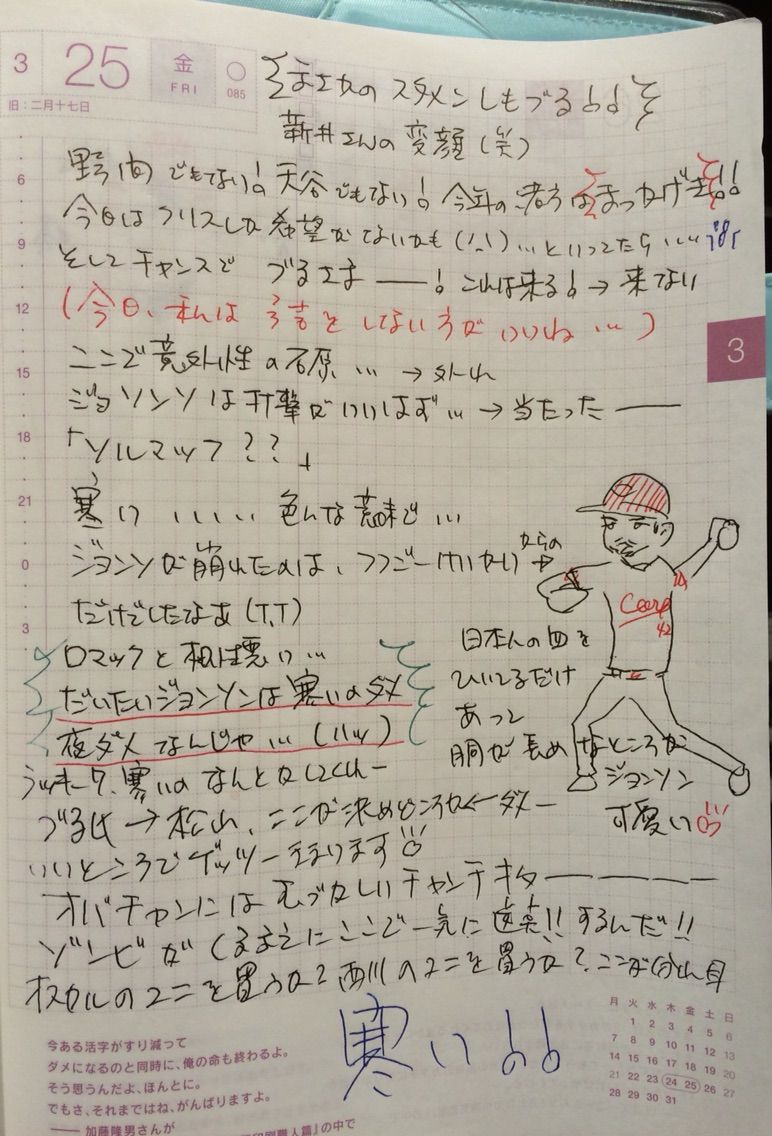 3 25 金 FRI 085
旧：二月十七日
まさかのスタメンしもづる！！
新井さんの変顔（笑）
野間でもない！天谷でもない！今年の
今日は 希望がないかも といってたら
そしてチャンスで づるさまー！これは来る！→来ない
（今日、私は をしない方がいいね…）
ここで意外性の石原…→外れ
ジョンソンは打撃がいいはず…→当たったー
「ソルマック？？」
寒い いいい 色んな意味で…
ジョンソンが崩れたのは、
だけどしたなあ（T.T）
ロマックと相性悪い…
だいたいジョンソンは寒いのダメ
夜ダメなんじゃ…（ハッ）
ラッキー7、寒いのなんとかしてくれー
づる氏→松山、ここが決めどころか←ダメー
いいところでゲッツー 気まります
オバチャンにはむづかしいチャンテキター
ゾンビがくるまえにここで一気に 追真!!するんだ!!
オスカルのユニを買うか？西川のユニを買うか？ここが分れ目
寒い！！
からの
Carp
42
日本人の血を
ひいてるだけ
あって
胴が長めなところが
ジョンソン
可愛い
6
9
12
15
18
21
0
3
3
今ある活字がすり減って
ダメになるのと同時に、俺の命も終わるよ。
そう思うんだよ、ほんとに。
でもさ、それまではね、がんばりますよ。
── 加藤隆男さんが
』の中で
月 火 水 木 金 土 日
1 2 3 4 5 6
7 8 9 10 11 12 13
14 15 16 17 18 19 20
21 22 23 24 25 26 27
28 29 30 31